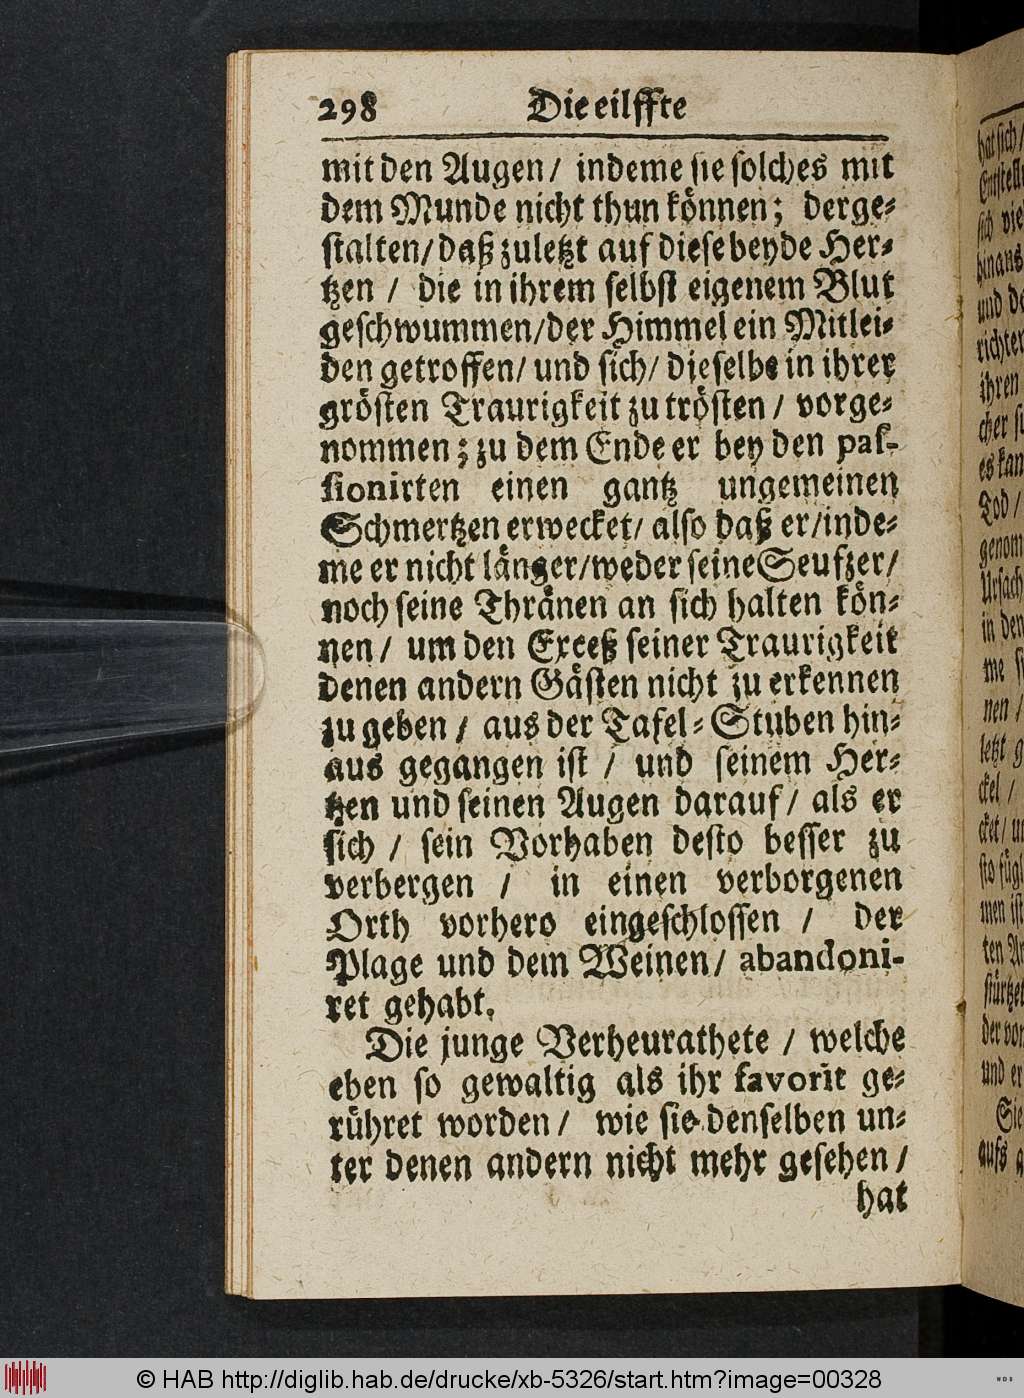 298 Die eilffte
mit den Augen / indeme sie solches mit
dem Munde nicht thun können; derge-
stalten / daß zuletzt auf diese beyde Her-
tzen / die in ihrem selbst eigenem Blut
geschwummen / der Himmel ein Mitlei-
den getroffen / und sich / dieselbe in ihrer
grösten Traurigkeit zu trösten / vorge-
nommen; zu dem Ende er bey den pas-
sionirten einen gantz ungemeinen
Schmertzen erwecket / also daß er / inde-
me er nicht länger / weder seine Seufzer /
noch seine Thränen an sich halten kön-
nen / um den Exceß seiner Traurigkeit
denen andern Gästen nicht zu erkennen
zu geben / aus der Tafel-Stuben hin-
aus gegangen ist / und seinem Her-
tzen und seinen Augen darauf / als er
sich / sein Vorhaben desto besser zu
verbergen / in einen verborgenen
Orth vorhero eingeschlossen / der
Plage und dem Weinen / abandoni-
ret gehabt.
Die junge Verheurathete / welche
eben so gewaltig als ihr favorit ge-
rühret worden / wie sie denselben un-
ter denen andern nicht mehr gesehen /
hat
hat sich /
sich vie
und de
richter
ihren
es kan
Tod /
genom
Ursach
in den
nen /
letzt g
ckel /
men ist
der von
und er
Sie
aufs g
© HAB http://diglib.hab.de/drucke/xb-5326/start.htm?image=00328